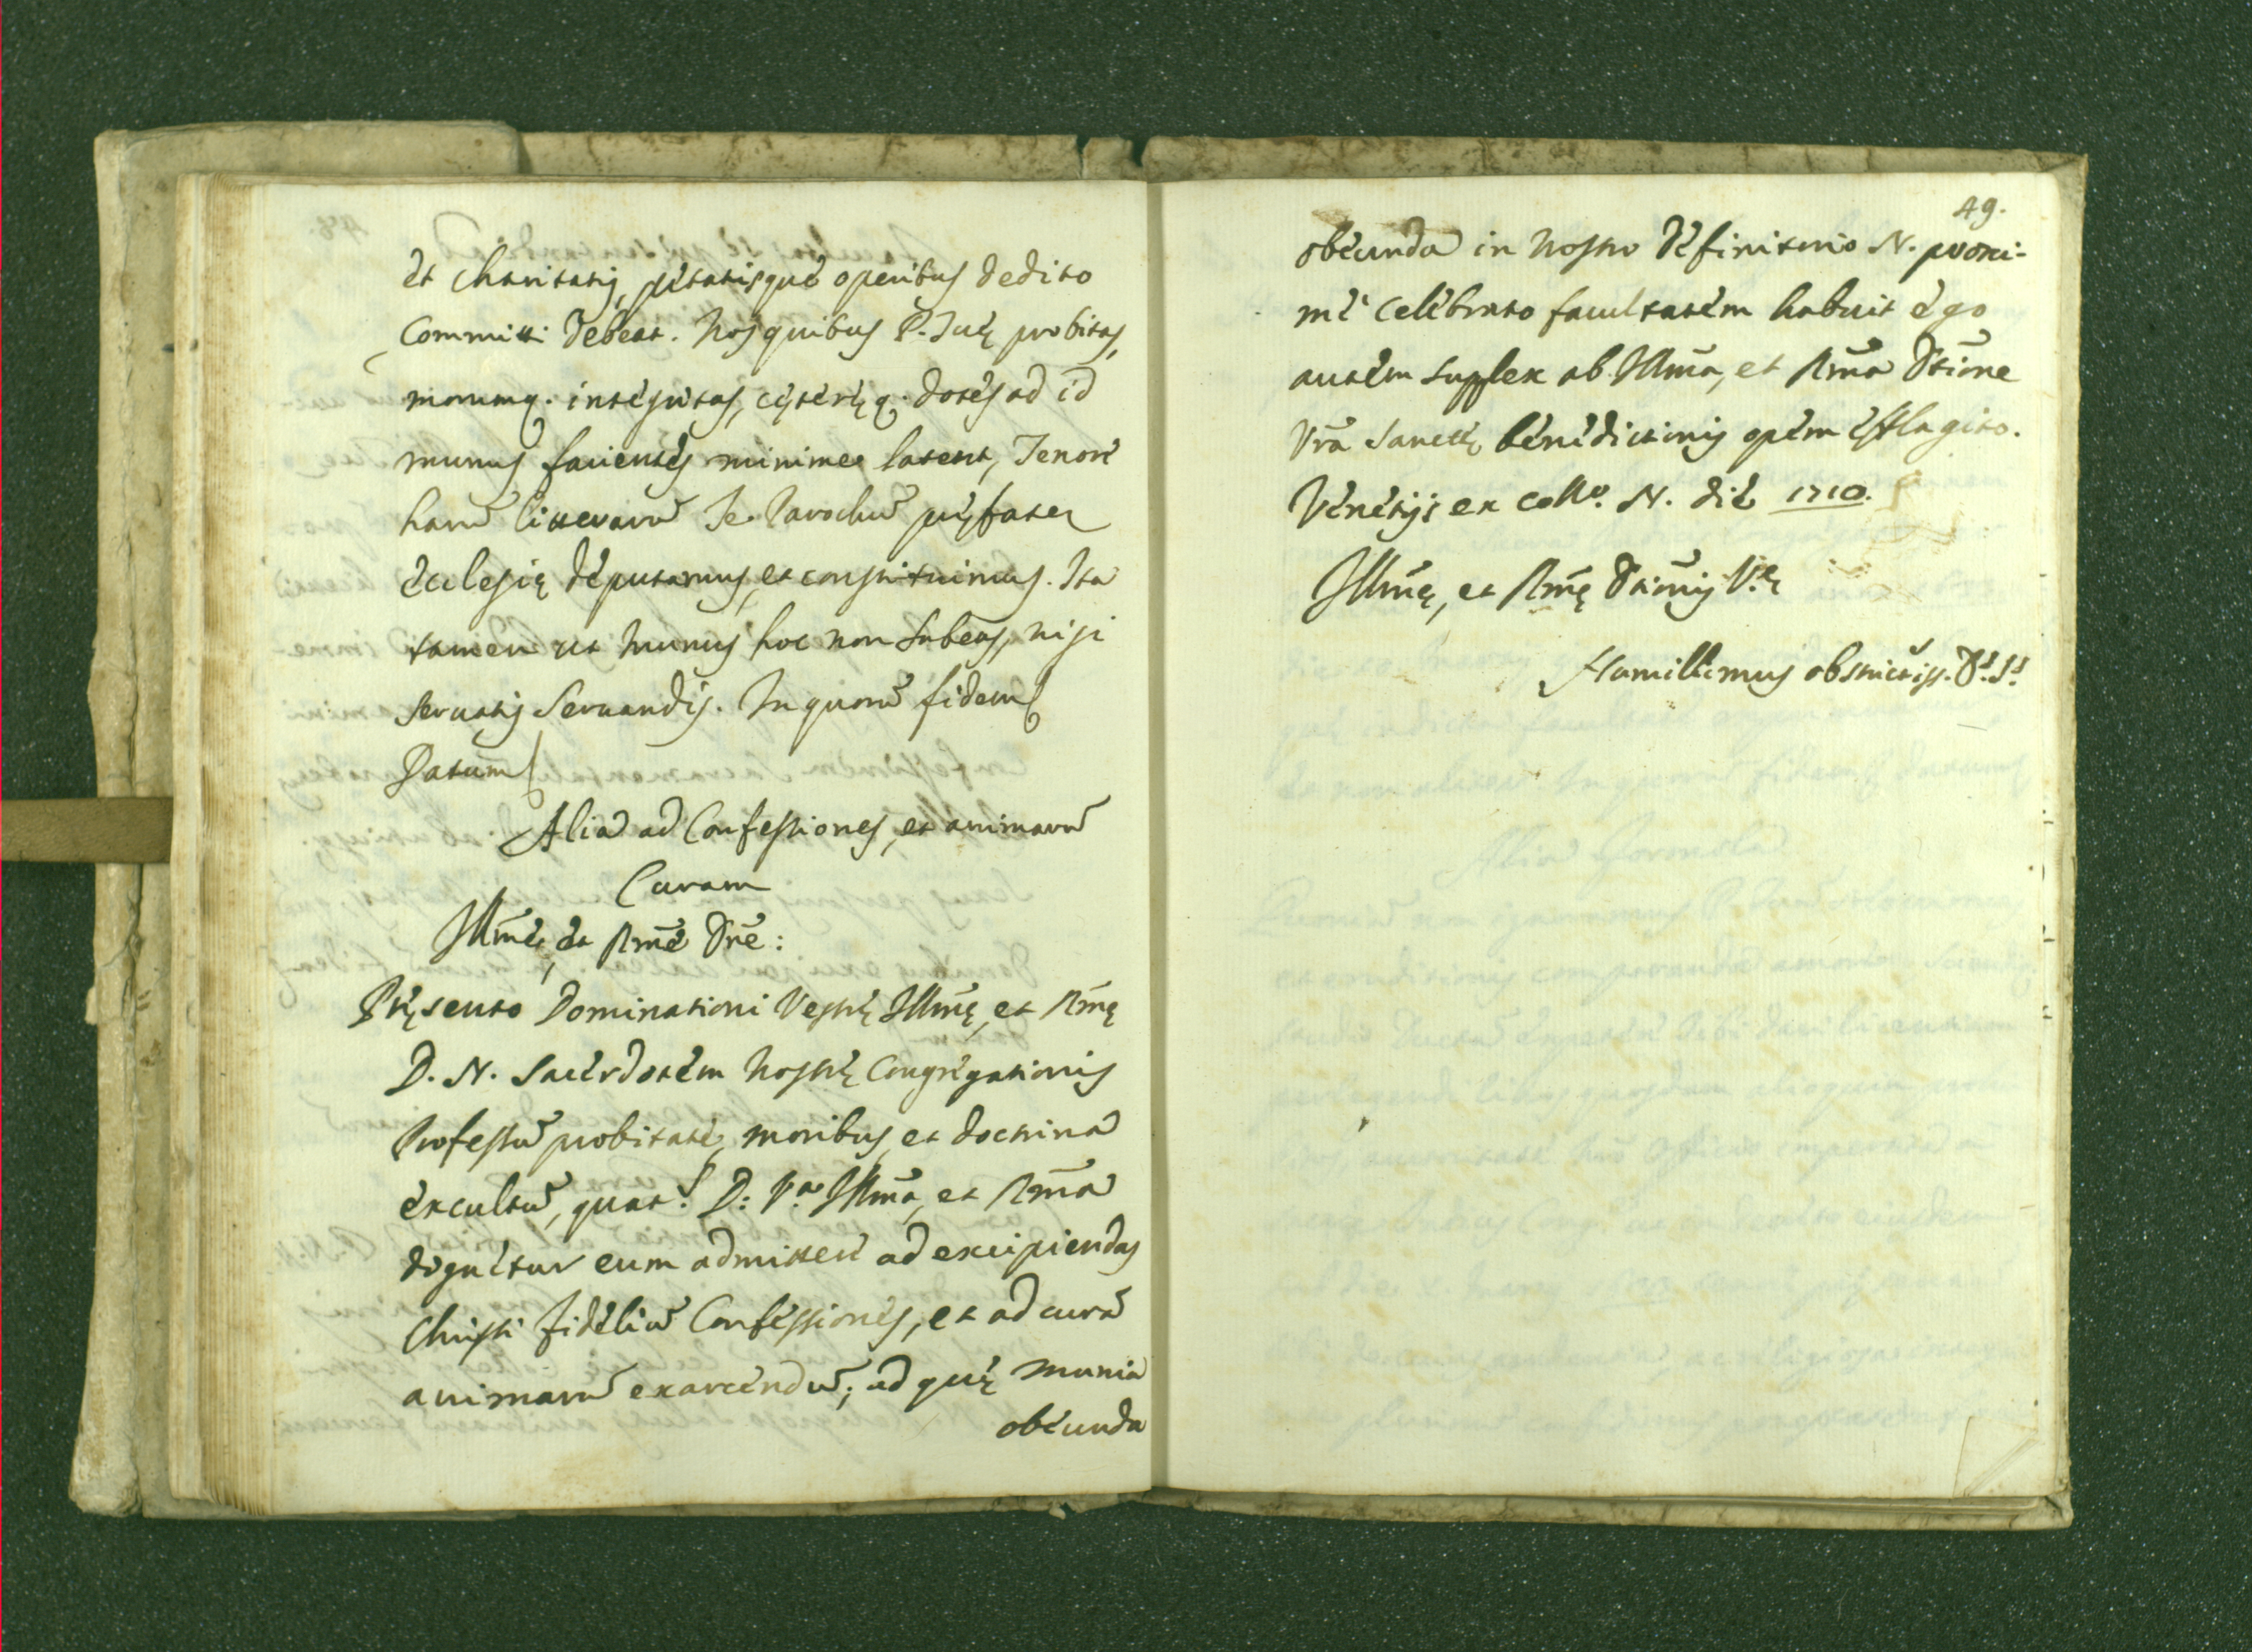 et charitatis, pietatisque operibus dedito
committi debeat. Nos quibus P. Tuę probitas,
morumq. integritas, cęteręq. dotes ad id
munus facientes minime latent, Tenore
harū litterarū Te Parochū pręfatę
Ecclesię deputamus, et constituimus. Ita
tamen ut munus hoc non subeas, nisi
servatis servandis. In quorū fidem
Datum
Alia ad Confessiones, et animarū
Curam
Illm̄e, et Rm̄e Dn̄e:
Pręsento Dominationi Vestrę Illm̄ę, et Rm̄ę
D. N. Sacerdotem nostrę Congregationis
Professū probitate, moribus, et doctrina
excultū, quat.s D: V.a Illm̄a, et Rm̄a
dignetur eum admittere ad excipiendas
Christi fideliū Confessiones, et ad curā
animarū exarcendū; ad quę munia
obeunda
49.
obeunda in nostro definitorio N. proxi-
me celebrato facultatem habuit ego
autem supplex ab Illm̄a, et Rm̄a Dtiōne
Vrā sanctę benedictionis opem efflagito.
Venetijs ex coll.o N. die 1710.
Illm̄ę, et Rm̄ę Dtiōnis V.ę
Humillimus obstrictiss. D.s S.s